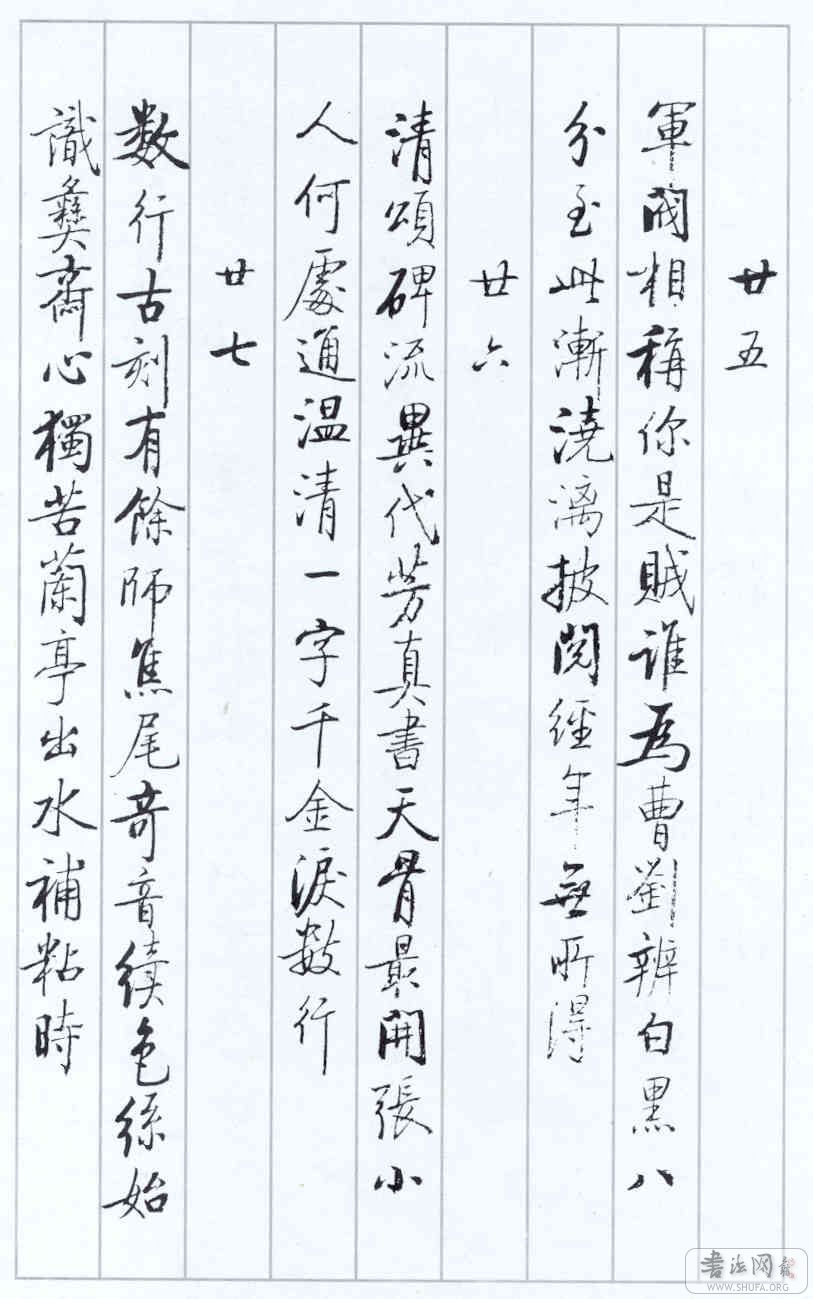 廿五
軍閥相稱你是賊誰爲曹劉辨白黑八
分至此漸澆漓披閱經年無所得
廿六
清頌碑流異代芳真書天骨最開張小
人何處通温清一字千金淚數行
廿七
数行古刻有餘師焦尾奇音續色絲始
識彝齋心獨苦蘭亭出水補粘時
書法网
WWW.SHUFA.ORG